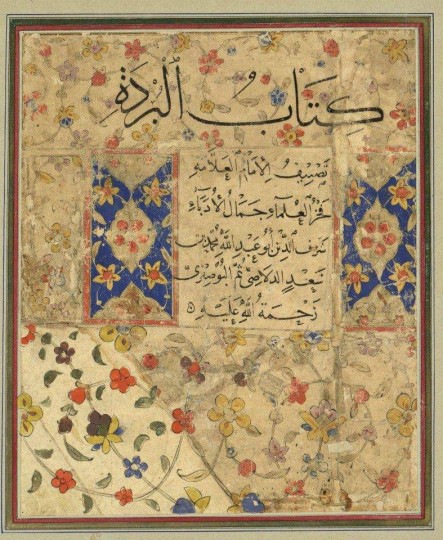 كِتَابُ الْبُرْدَةِ
تَصْنِيفُ الْإِمَامِ الْعَلَّامَةِ
فَخْرُ الْعُلَمَاءِ وَجَمَالُ الْأُدَبَاءِ
شَرَفُ الدِّين أَبُو عَبْدِ اللَّهِ مُحَمَّد بْن
سَعِيدِ الدلاصِيّ ثُمَّ الْبُوصِيرِي
رَحْمَةُ اللَّهِ عَلَيْهِ